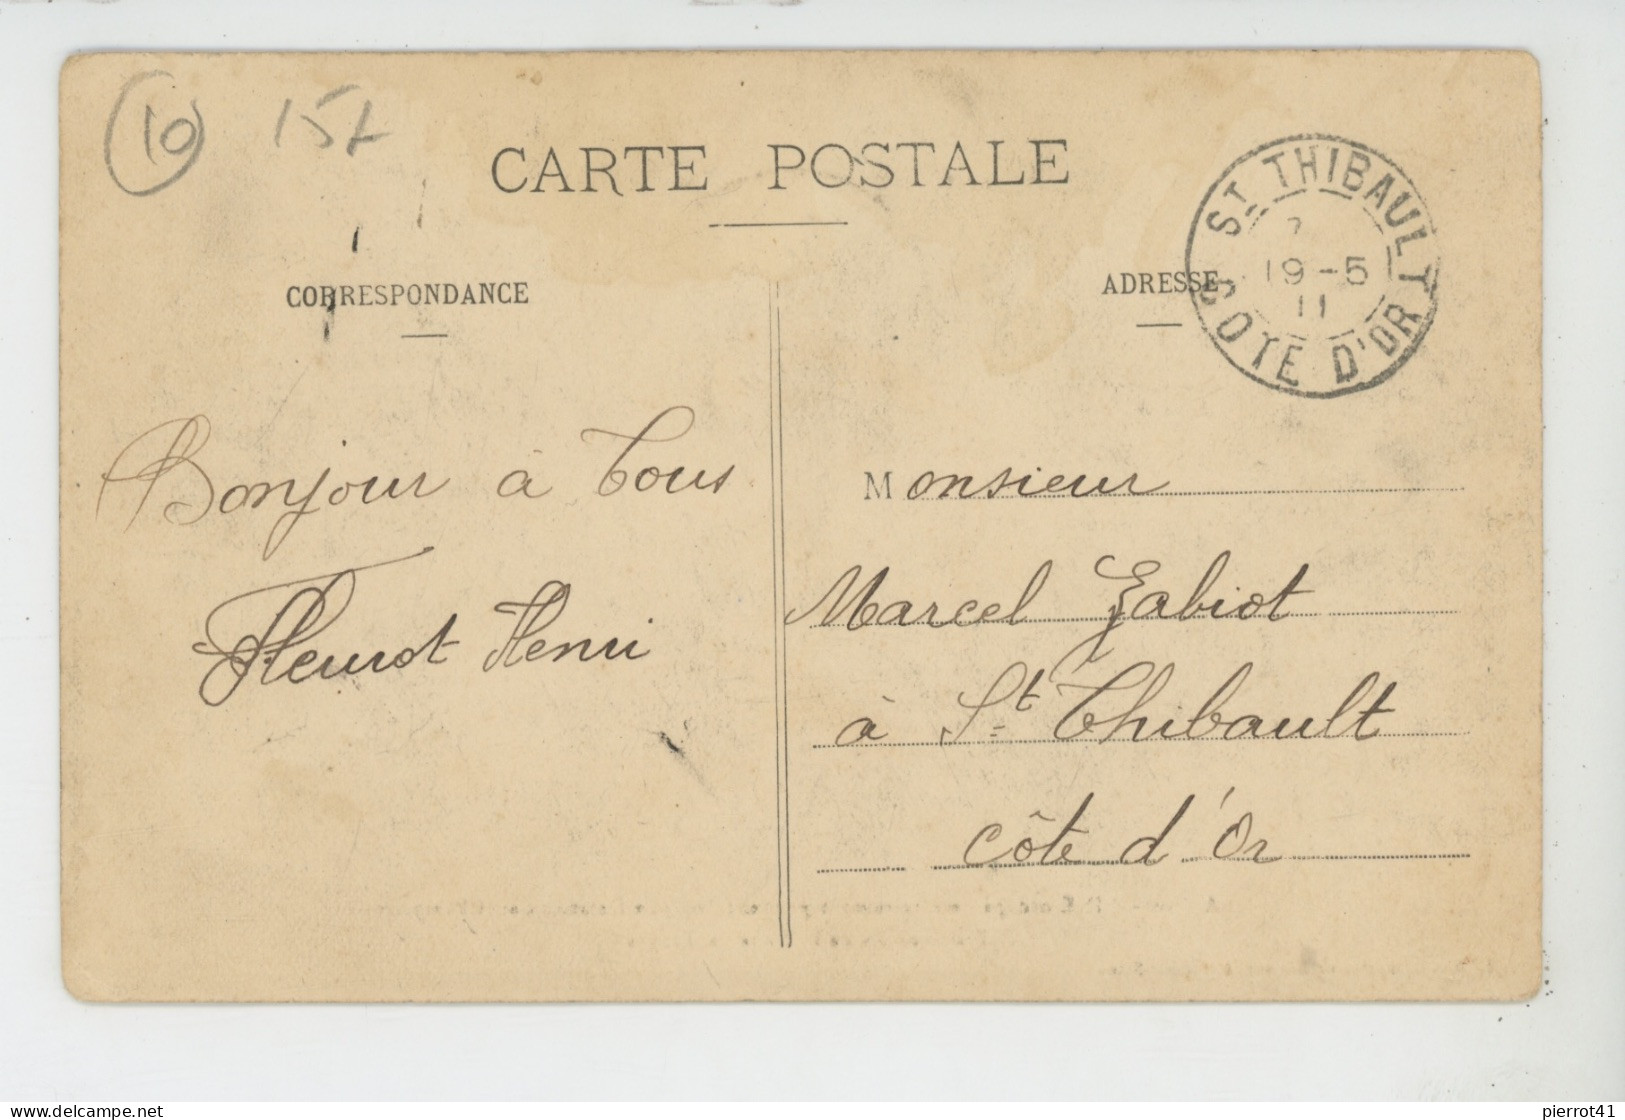 10 15
CARTE POSTALE
CORRESPONDANCE
ADRESSE
ST THIBAULT
19-5
11
COTE D'OR
Bonjour à Tous
Fleurot Henri
Monsieur
Marcel Gabiot
à St Thibault
Côte d'Or
delcampe.net
pierrot41